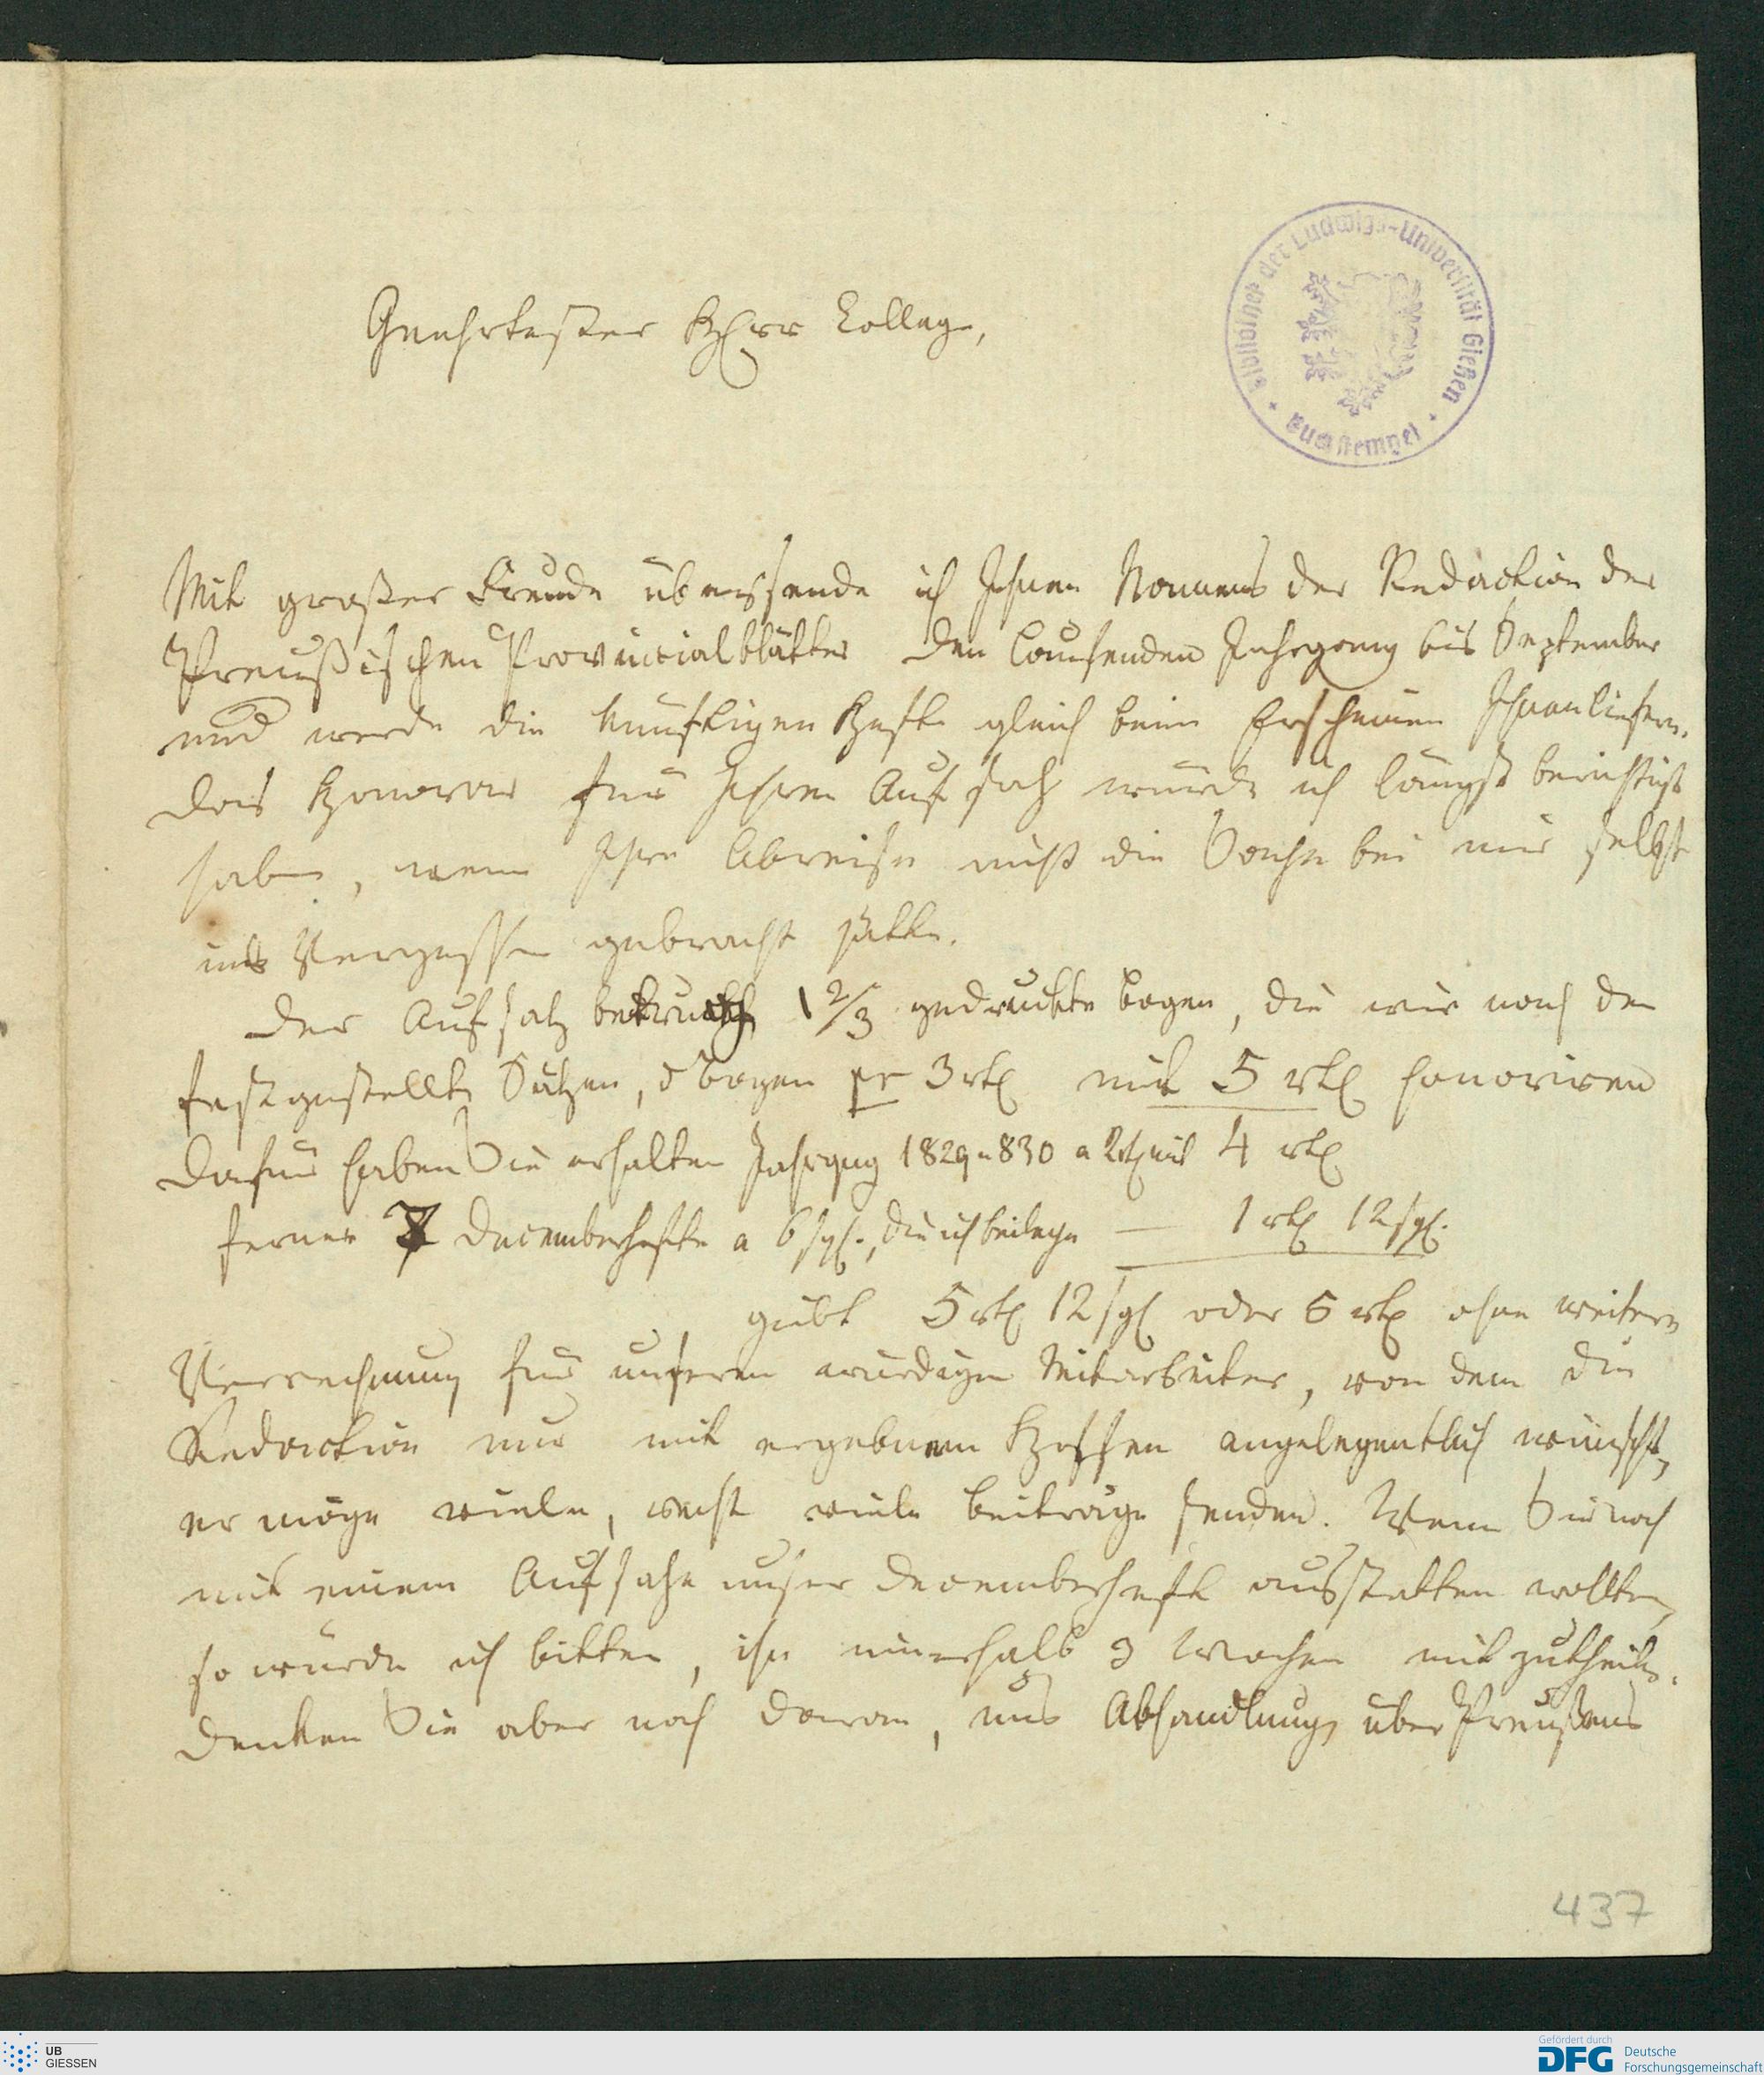 Geehrtester Herr College,
Bibliothek der Ludwigs-Universität Gießen
Buchstempel
Mit großer Freude übersende ich Ihnen Namens der Redaction der
Preußischen Provincialblätter den laufenden Jahrgang bis September
und werde die künftigen Hefte gleich beim Erscheinen Ihnen liefern.
Das Honorar für Ihren Aufsatz würde ich längst berichtigt
haben, wenn Ihre Abreise nicht die Sache bei mir selbst
ins Vergessen gebracht hätte.
Der Aufsatz beträgt 1 2/3 gedruckte Bogen, die wir nach den
festgestellten Sätzen, d Bogen pr 3 rtl mit 5 rtl honoriren
Dafür haben Sie erhalten Jahrgng 1829 u 830 a 2 rtl mit 4 rtl
ferner 7 Decemberhefte a 6 sgl., die ich beilege — 1 rtl 12 sgl.
giebt 5 rtl 12 sgl oder 5 rtl ohne weitere
Verrechnung für unseren würdigen Mitarbeiter, von dem die
Redaction nur mit ergebnem Hoffen angelegentlich wünscht,
er möge viele, recht viele Beiträge senden. Wenn Sie noch
mit einem Aufsatze unser Decemberheft ausstatten wollten,
so würde ich bitten, ihn innerhalb 3 Wochen mitzutheilen.
Denken Sie aber noch daran, uns Abhandlung über Preußens
437
UB
GIESSEN
Gefördert durch
DFG Deutsche
Forschungsgemeinschaft